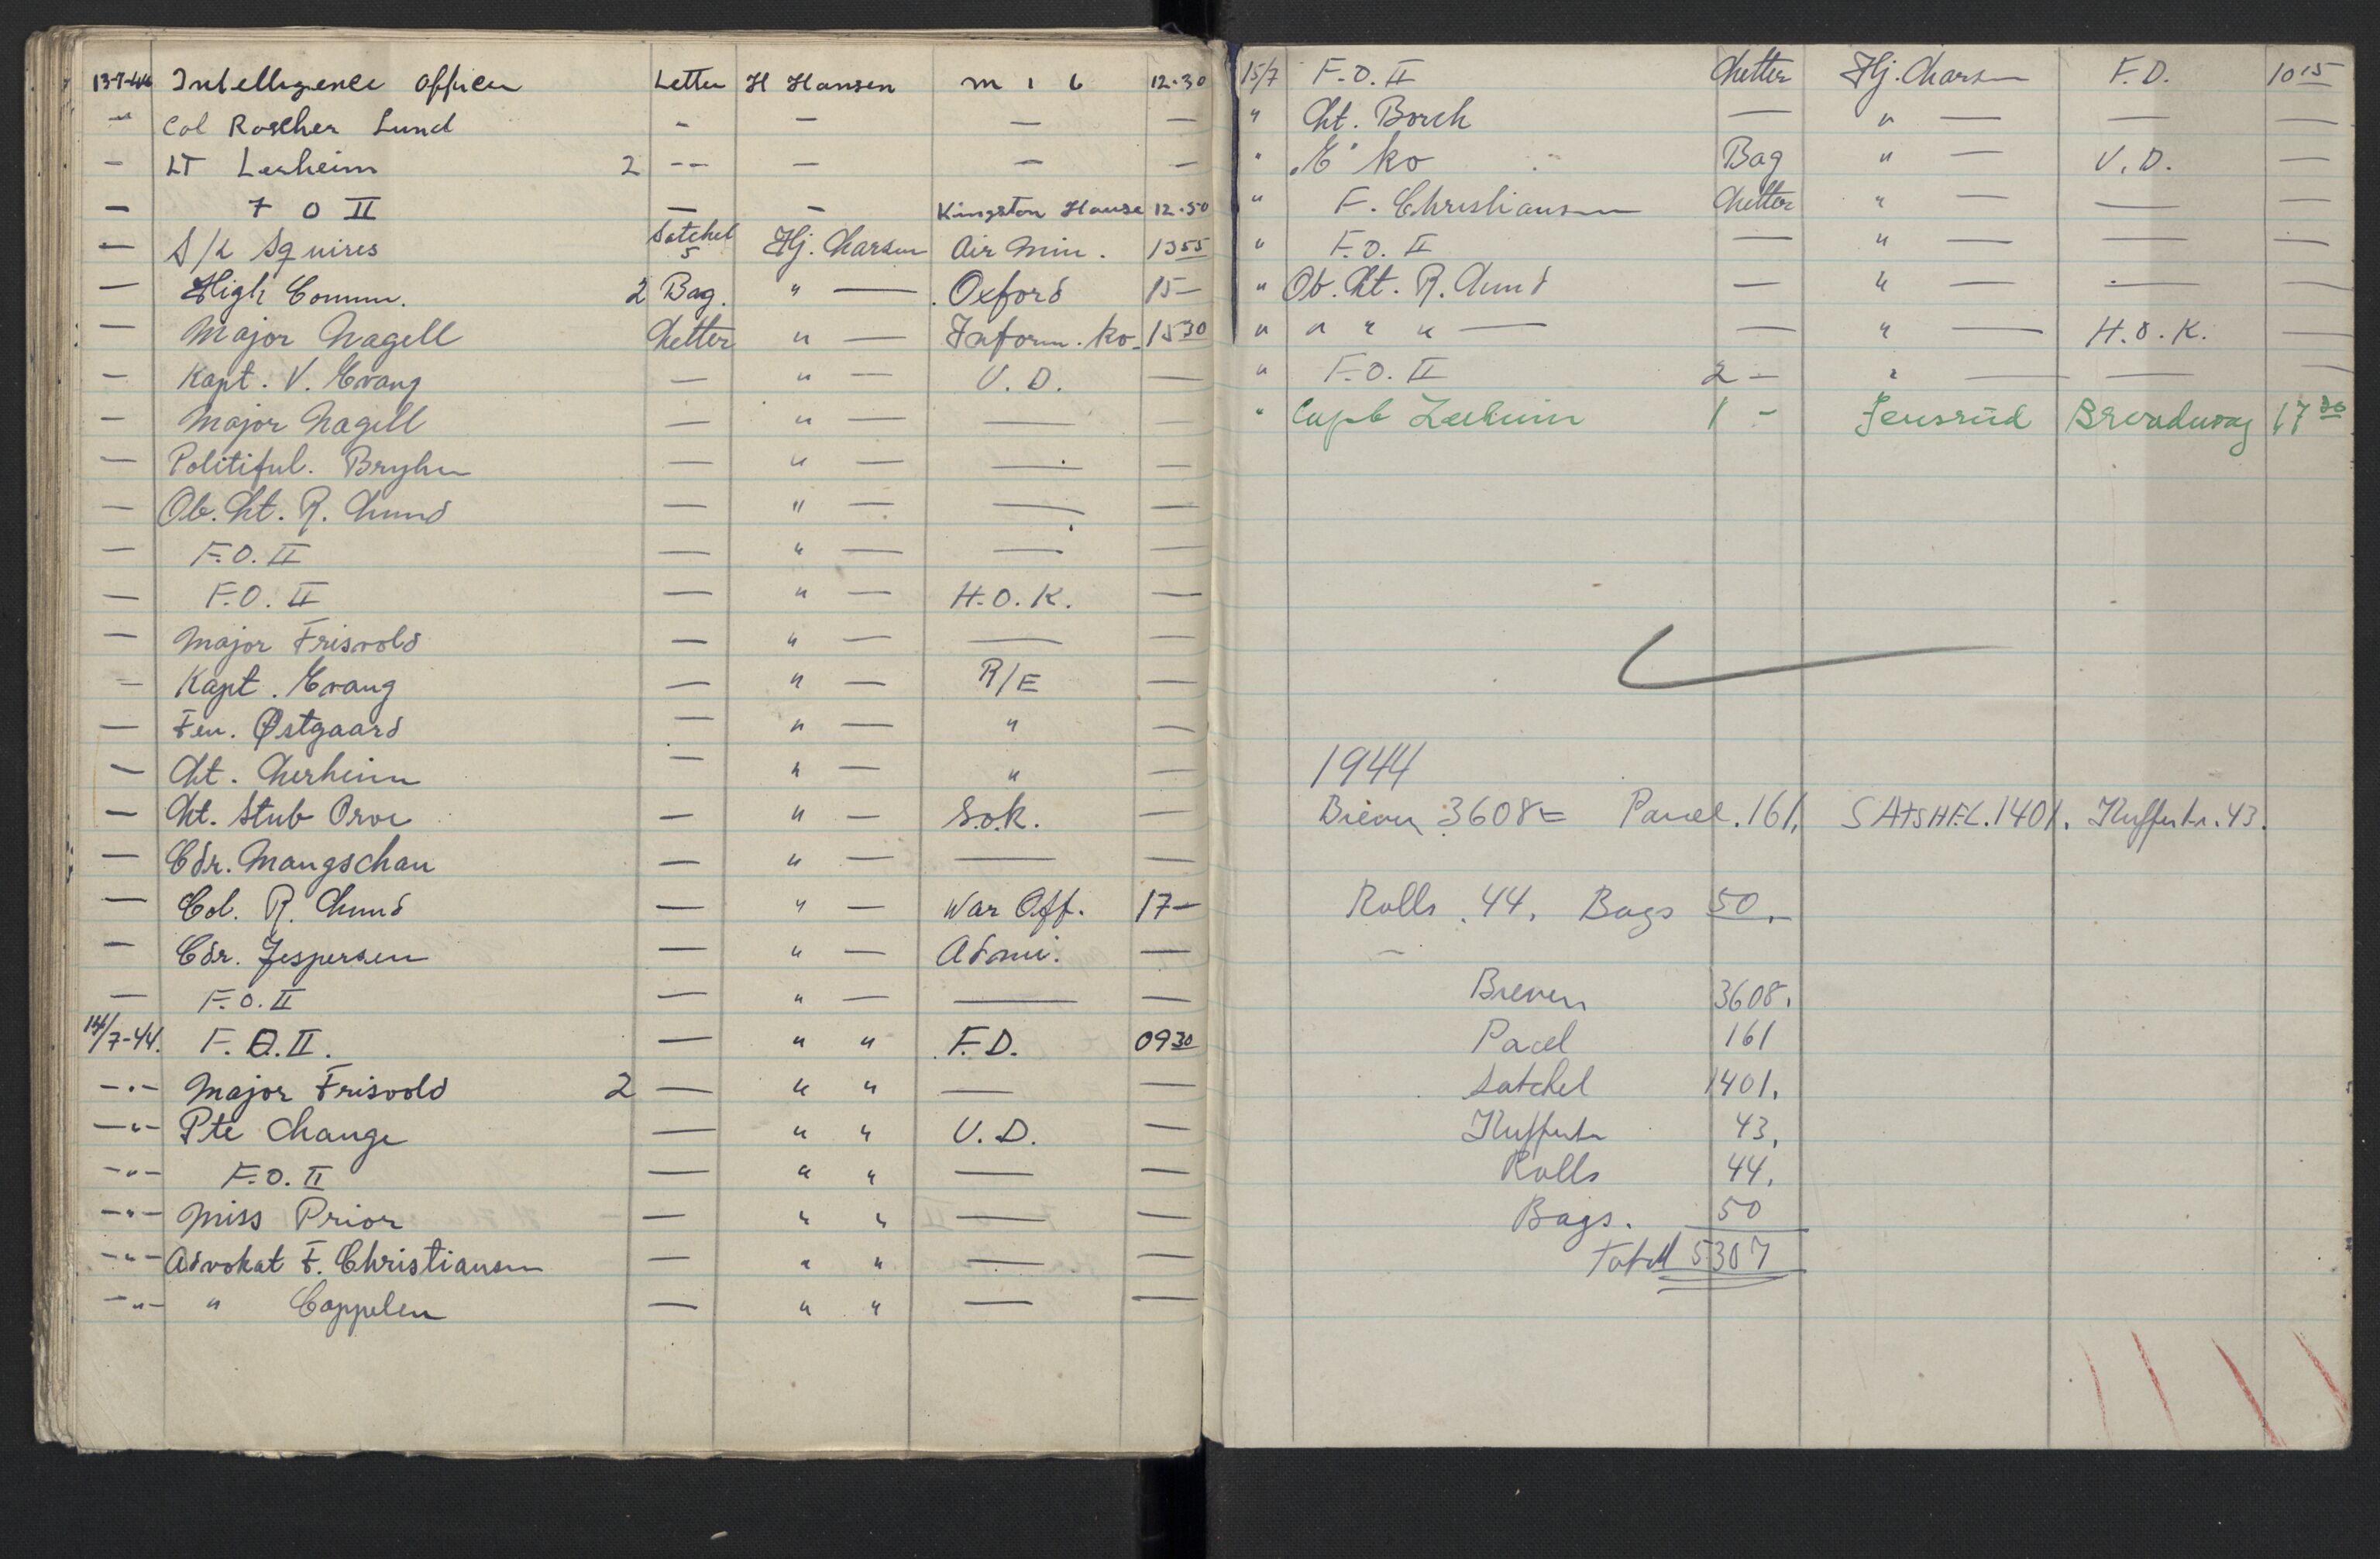 13-7-44 Intelligence Officer Letter H Hansen M I 6 12.30
" Col Roscher Lund - — — —
— LT Lerheim 2 -- — — —
— F O II — — Kingston House 12.50
— S/L Squires Satchel 5 Hj. Larsen Air Min. 13 55
— High Comm. 2 Bag. " — Oxford 15 —
— Major Nagell Letter " — Inform. ko. 15 30
— Kapt. V. Evang — " — U.D. —
— Major Nagell — " — — —
— Politiful. Bryhn — " — — —
— Ob. Lt. R. Lund — " — — —
— F.O. II — " — — —
— F.O. II — " — H.O.K. —
— Major Frisvold — " — — —
— Kapt. Evang — " — R/E —
— Fen. Østgaard — " — " —
— Lt. Lerheim — " — " —
— Lt. Stub — " — S.O.K. —
— Cdr. Mangschau — " — — —
— Col. R. Lund — " — War Off. 17 —
— Cdr. Jespersen — " — Admi. —
— F.O. II — " — — —
14/7-44. F.O. II. — " " F.D. 09 30
—"— Major Frisvold 2 — " " — —
—"— Pte Lange — " " U.D. —
—"— F.O. II — " " — —
—"— Miss Prior — " " — —
—"— Advokat F. Christiansen — " " — —
—"— " Cappelen — " " — —
15/7 F.O. II Letter Hj. Larsen F.D. 10 15
" Lt. Borch — " — — —
" "E" ko Bag " — U.D. —
" F. Christiansen Letter " — — —
" F.O. II — " — — —
" Ob. Lt. R. Lund — " — — —
" " " " — — " — H.O.K. —
" F.O. II 2 — " — — —
" Capt Lerheim 1 - Jensrud Broadway 17 30
1944
Breven 3608 = Parcel. 161. SATSHEL. 1401. Kufferter. 43.
Rolls. 44. Bags 50.
Breven 3608.
Pacel 161
Satchel 1401.
Kufferter 43.
Rolls 44.
Bags. 50
Total 5307